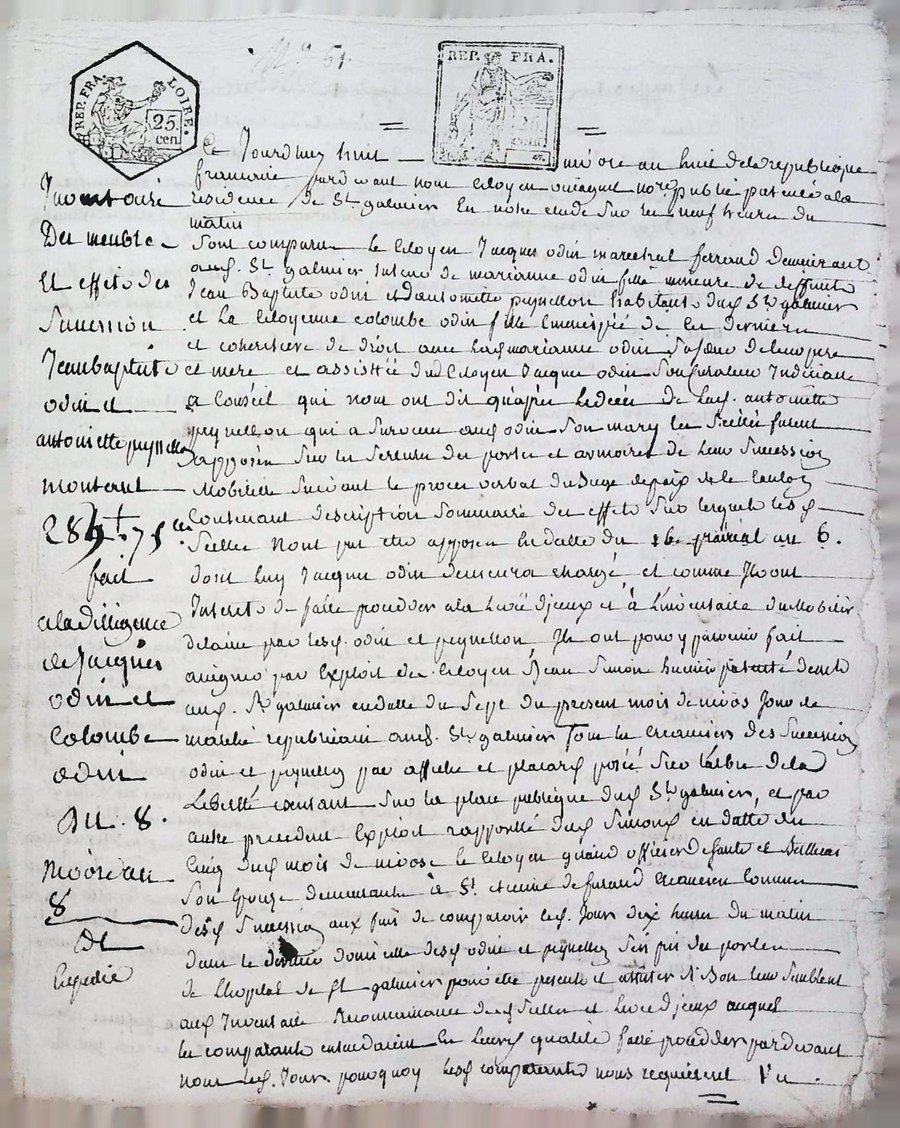 N° 51.
REP. FRA. LOIRE.
25. cen.
REP. FRA.
25
Ce Jourdhuy huit nivose an huit de la republique
francaise pardevant nous Citoyen notre publiq a la
residence de St. galmier En notre etude sur les neuf heures du
matin
Sont comparus le Citoyen Jacques odin marechal ferrand demeurant
aud. St. galmier tuteur de marianne odin fille mineure de deffunts
Jean Baptiste odin et d'antoinette peynellon habitants dud. St. galmier
et la Citoyenne colombe odin fille de ces derniers
et coheritiere de droit avec lad. marianne odin de leurs pere
et mere et assistée du Citoyen Jacques odin son curateur
et Conseil qui nous ont dit qu'apres le deces de lad. antoinette
peynellon qui a survecu aud. odin son mary les scellés furent
apposés sur les serrures des portes et armoires de leur succession
Mobiliere suivant le proces verbal du Juge de paix
Contenant description sommaire des effets sur lesquels lesd.
scelles n'ont pu etre apposes en datte du 16 prairial an 6.
dont led. Jacques odin demeura chargé, et comme Ils ont
Interets de faire proceder a la levée d'iceux et à l'inventaire du mobilier
delaissé par lesd. odin et peynellon, Ils ont pour y parvenir fait
assigner par Exploit du Citoyen Jean Simon huissier patenté
aud. St. galmier en datte du sept du present mois de nivos Jour de
marché republicain aud. St. galmier tous les creanciers des successions
odin et peynellon par affiche et placard posée sur l'arbre de la
Liberté existant sur la place publique dud. St. galmier, et par
autre precedent Exploit rapporté dud. Simon en datte du
Cinq dud. mois de nivose le Citoyen officier de santé et
son epouse demeurants à St. etienne de furand creanciers connus
desd. successions aux fins de comparoir led. Jour dix heures du matin
dans le dernier domicille desd. odin et peynellon sis pres des portes
de l'hopital de St. galmier pour etre presents et assister si Bon leur semblent
aud. Inventaire Reconnaissance desd. scelles et levée d'iceux auquel
les comparants entendaient En leurs qualités faire proceder pardevant
nous led. Jour. pourquoy lesd. comparants nous requierent
Inventaire
Des meubles
Et effets des
Succession
Jean baptiste
odin et
antoinette peynellon
montant
fait
a la dilligence
de Jacques
odin et
Colombe
odin
Du. 8.
nivose an
8
Et
Expedié